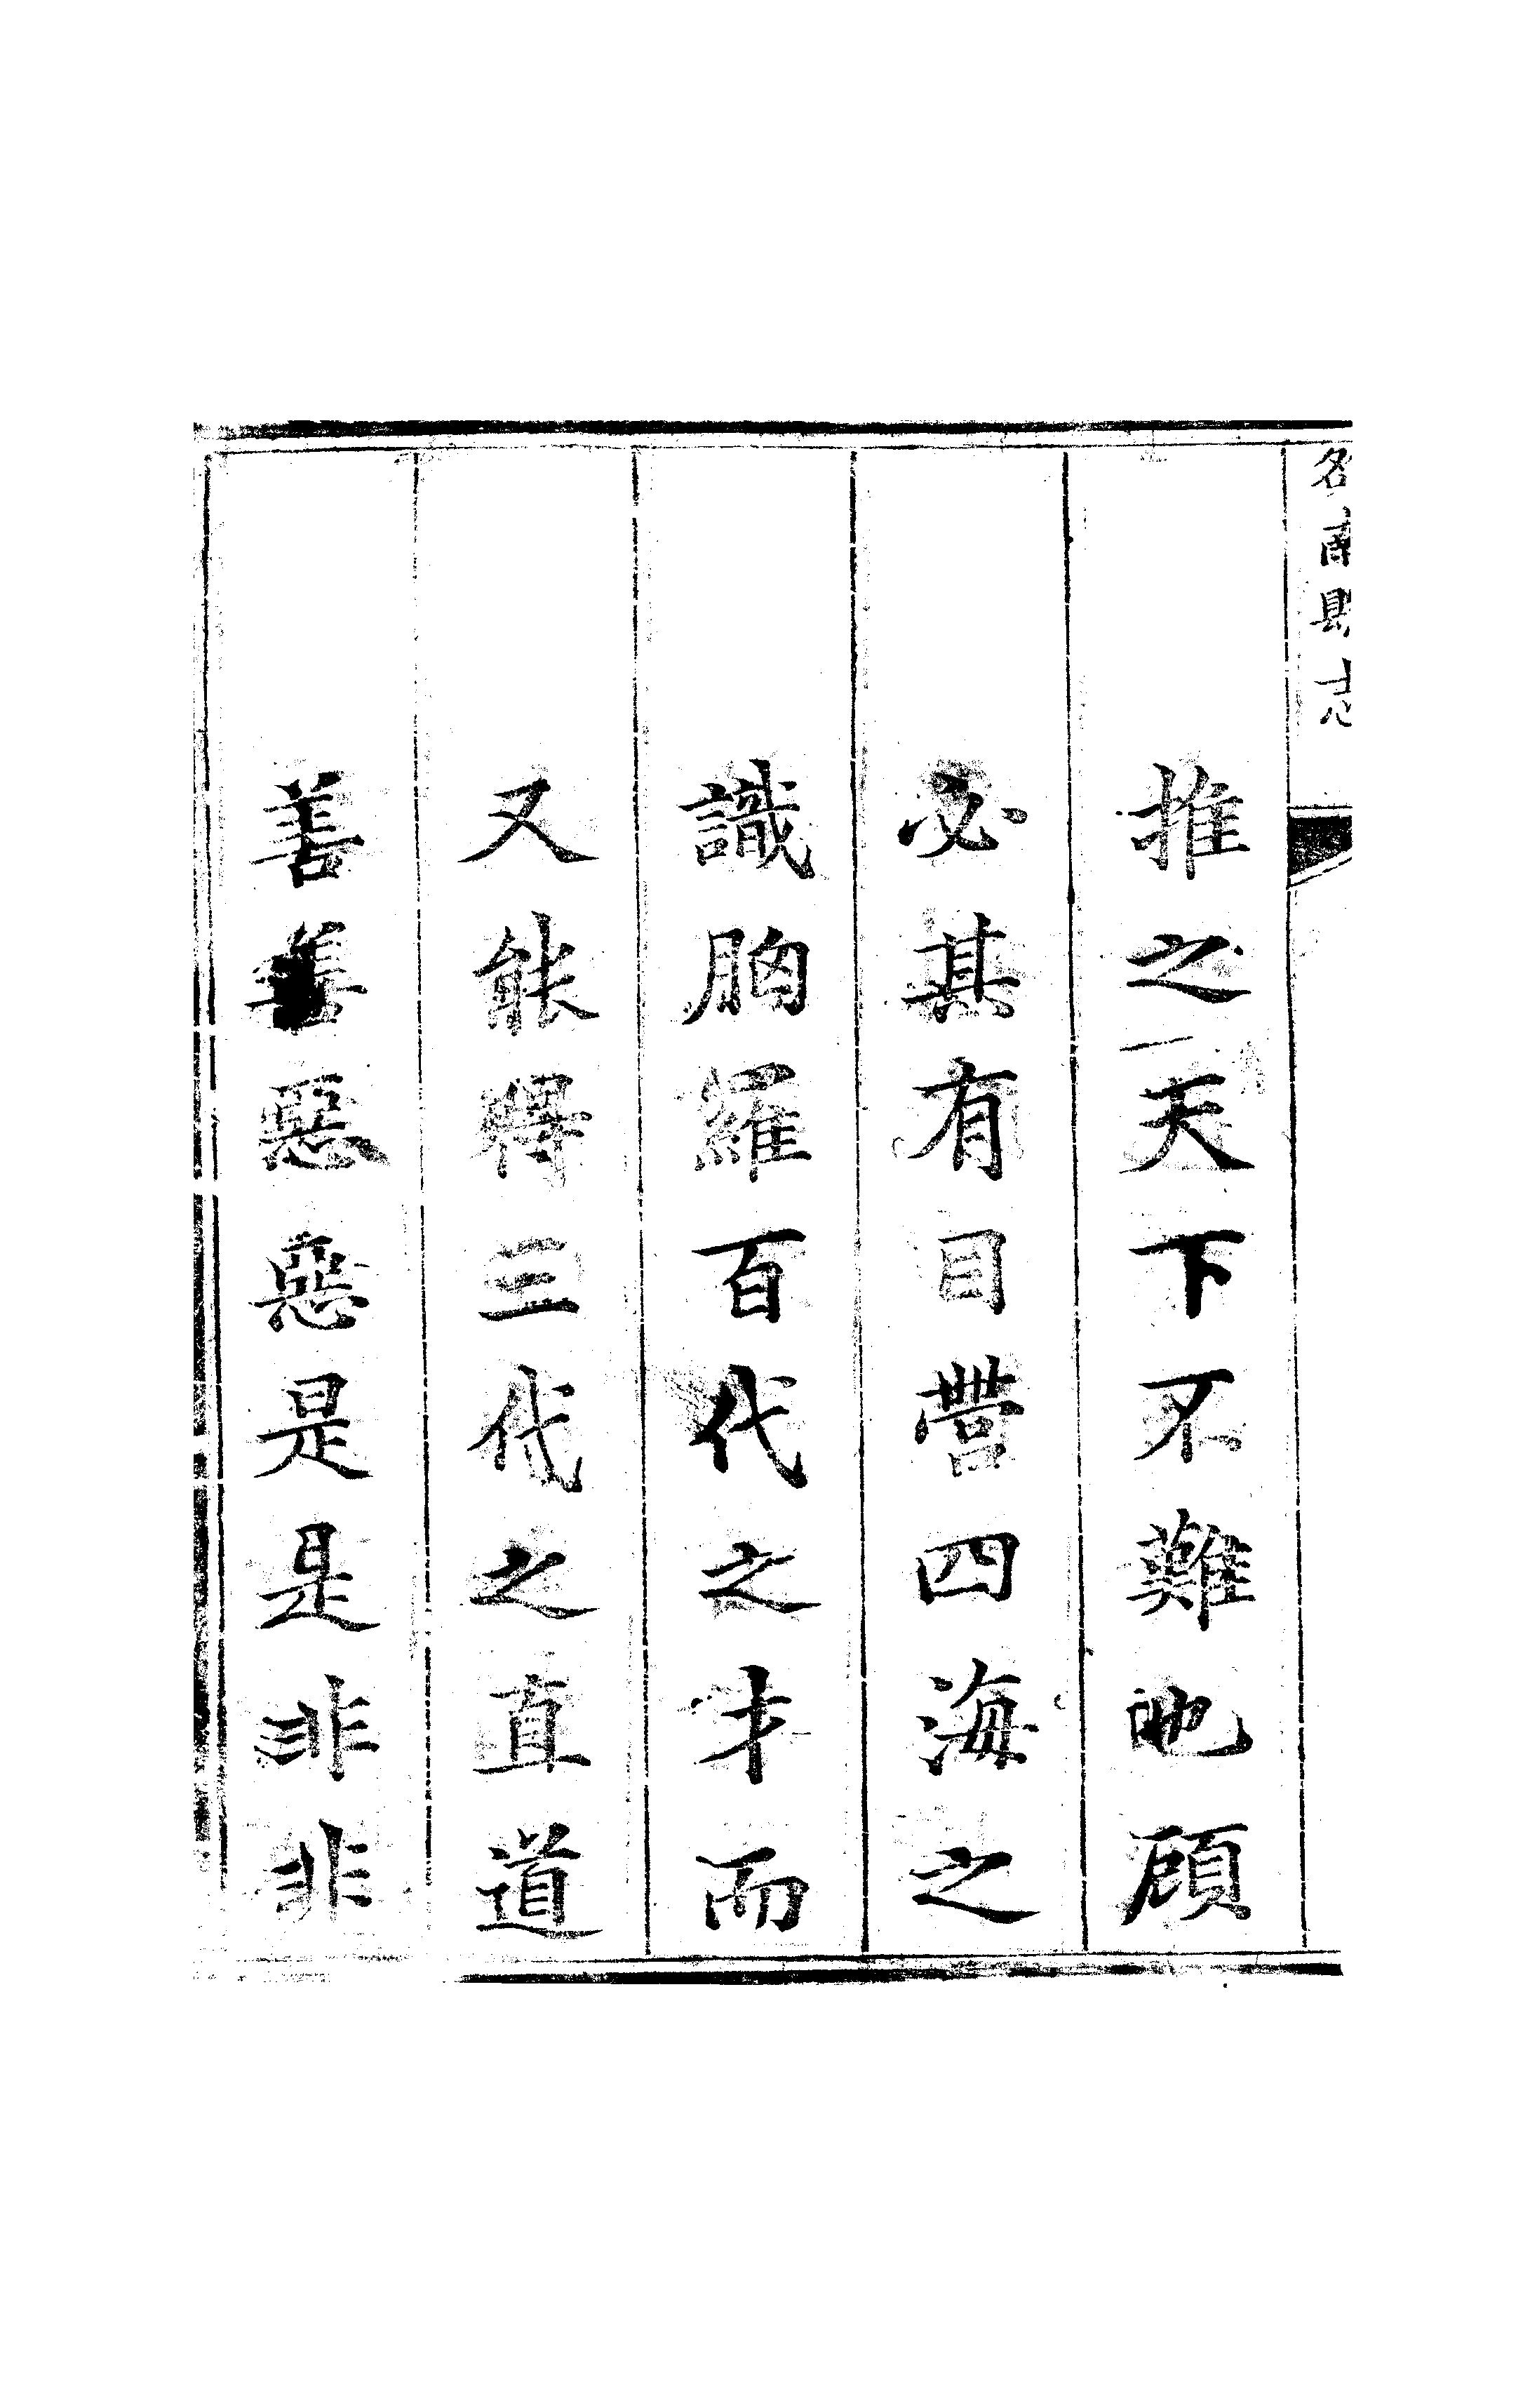 雒南縣志
推之天下不難也顧
必其有目營四海之
識胸羅百代之才而
又能得三代之直道
善善惡惡是是非非